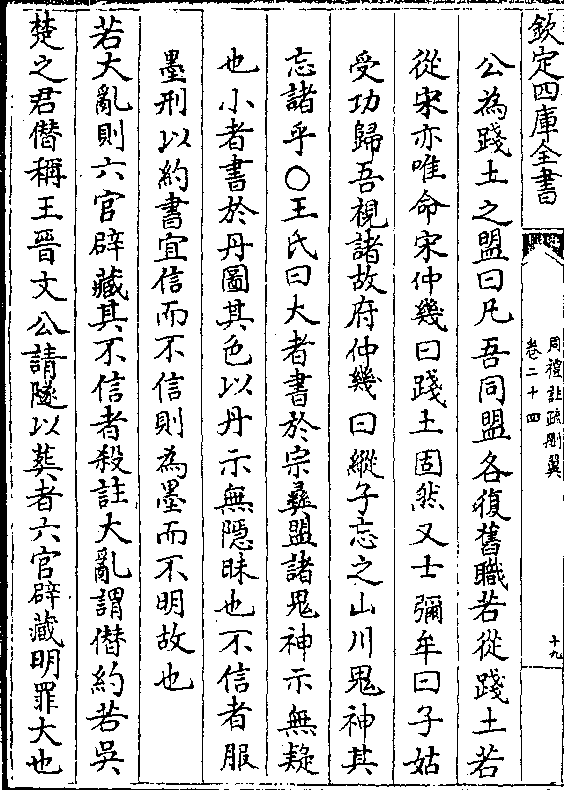 欽定四庫全書
周禮註疏刪翼
卷二十四
十九
公為踐土之盟曰凡吾同盟各復舊職若從踐土若
從宋亦唯命宋仲幾曰踐土固然又士彌牟曰子姑
受功歸吾視諸故府仲幾曰縱子忘之山川鬼神其
忘諸乎○王氏曰大者書於宗彝盟諸鬼神示無疑
也小者書於丹圖其色以丹示無隱昧也不信者服
墨刑以約書宜信而不信則為墨而不明故也
若大亂則六官辟藏其不信者殺註大亂謂僭約若吳
楚之君僭稱王晉文公請隧以葬者六官辟藏明罪大也